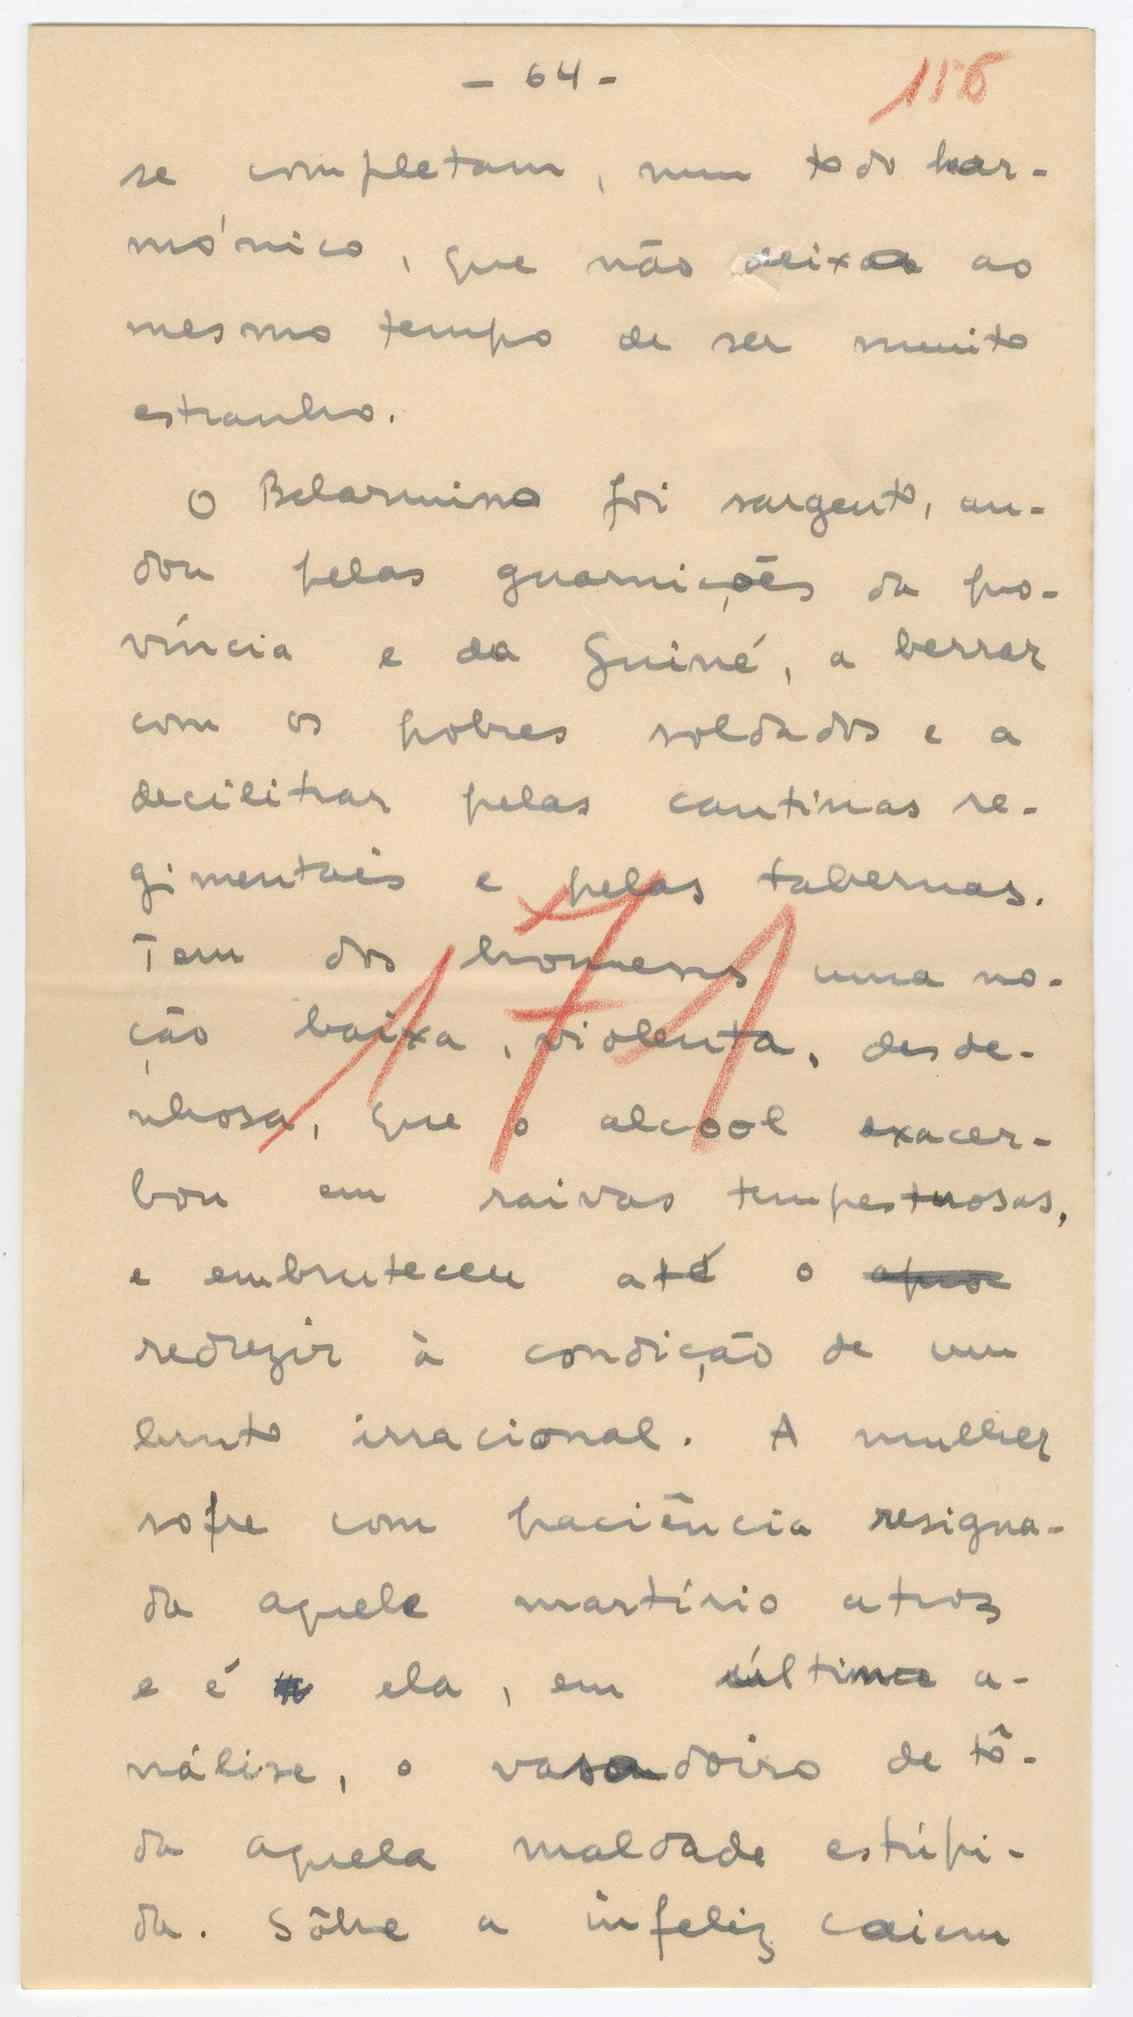 - 64 -
156
se completam, num todo har-
mónico, que não deixa ao
mesmo tempo de ser muito
estranho.
O Belarmino foi sargento, an-
dou pelas guarnições da pro-
víncia e da Guiné, a berrar
com os pobres soldados e a
decilitrar pelas cantinas re-
gimentais e pelas tabernas.
Tem dos homens uma no-
ção baixa, violenta, desde-
nhosa, que o alcool exacer-
bou em raivas tempestuosas,
e embruteceu até o
reduzir à condição de um
bruto irracional. A mulher
sofre com paciência resigna-
da aquele martírio atroz
e é ela, em última a-
nálise, o vasadoiro de tô-
da aquela maldade estúpi-
da. Sôbre a infeliz caiem
171